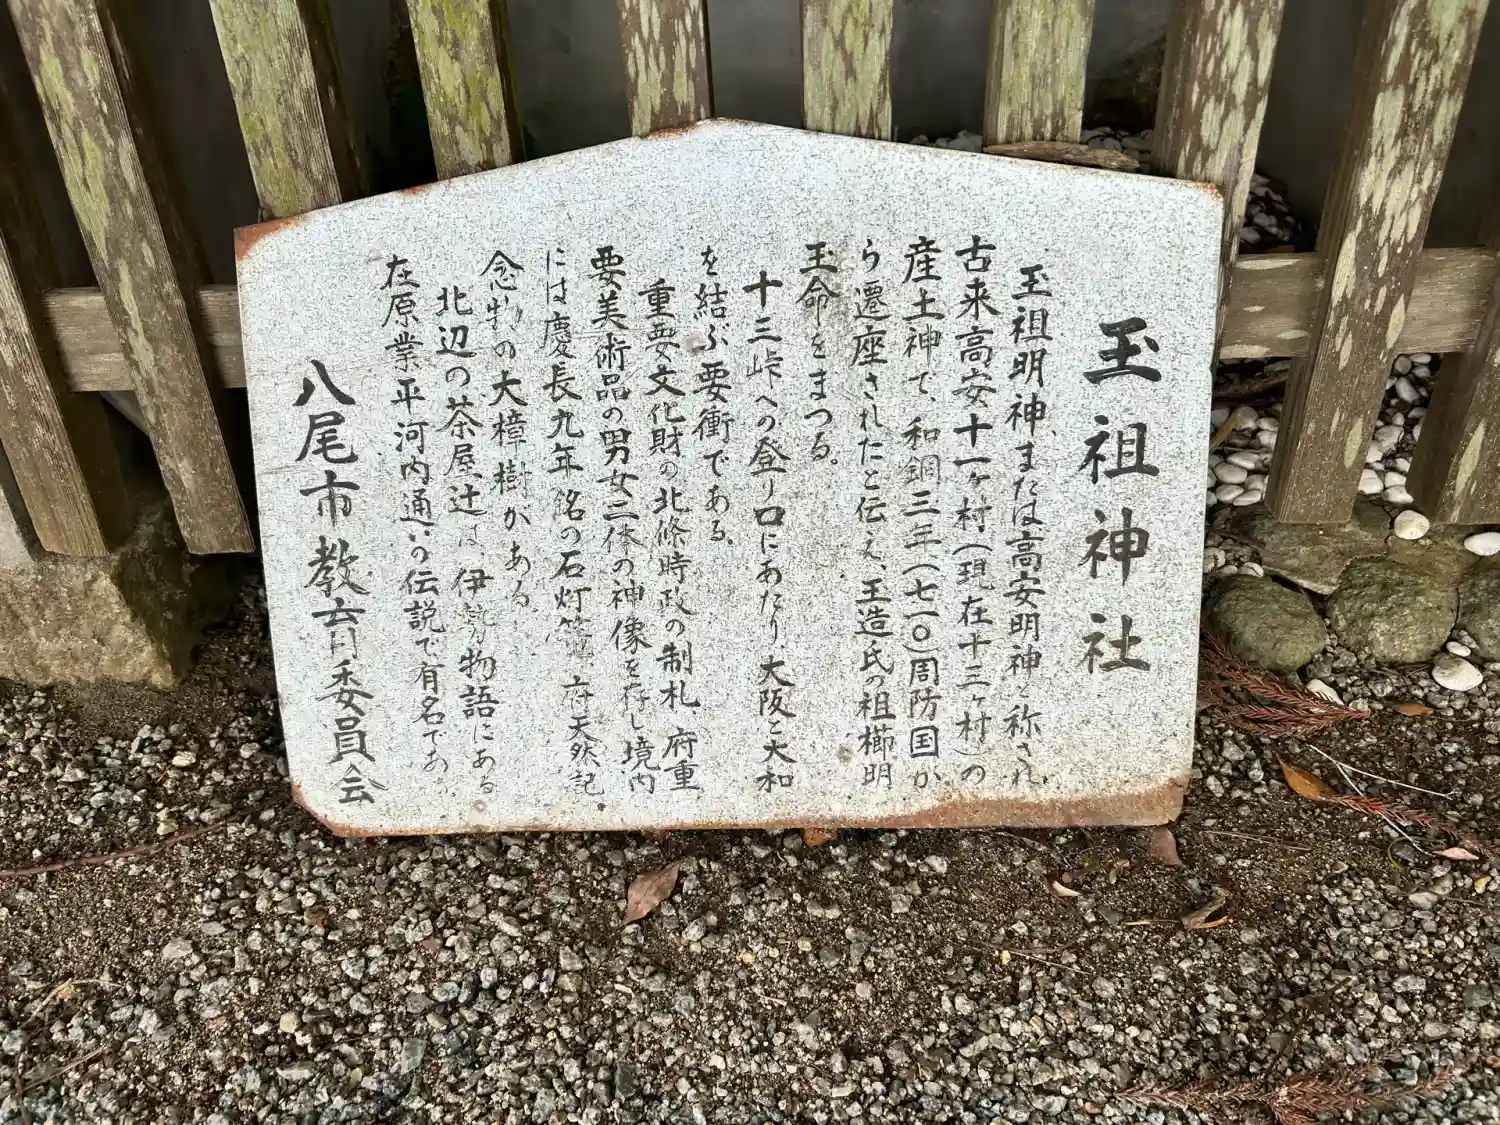 玉祖神社
玉祖明神または高安明神と称され
古来高安十一ヶ村(現在十三ヶ村)の
産土神で、和銅三年(七一〇)周防国か
ら遷座されたと伝え、玉造氏の祖櫛明
玉命をまつる。
十三峠への登り口にあたり、大阪と大和
を結ぶ要衝である。
重要文化財の北條時政の制札、府重
要美術品の男女二体の神像を存し境内
には慶長九年銘の石灯篭、府天然記
念物の大樟樹がある。
北辺の茶屋辻は、伊勢物語にある
在原業平河内通いの伝説で有名であ
八尾市教育委員会